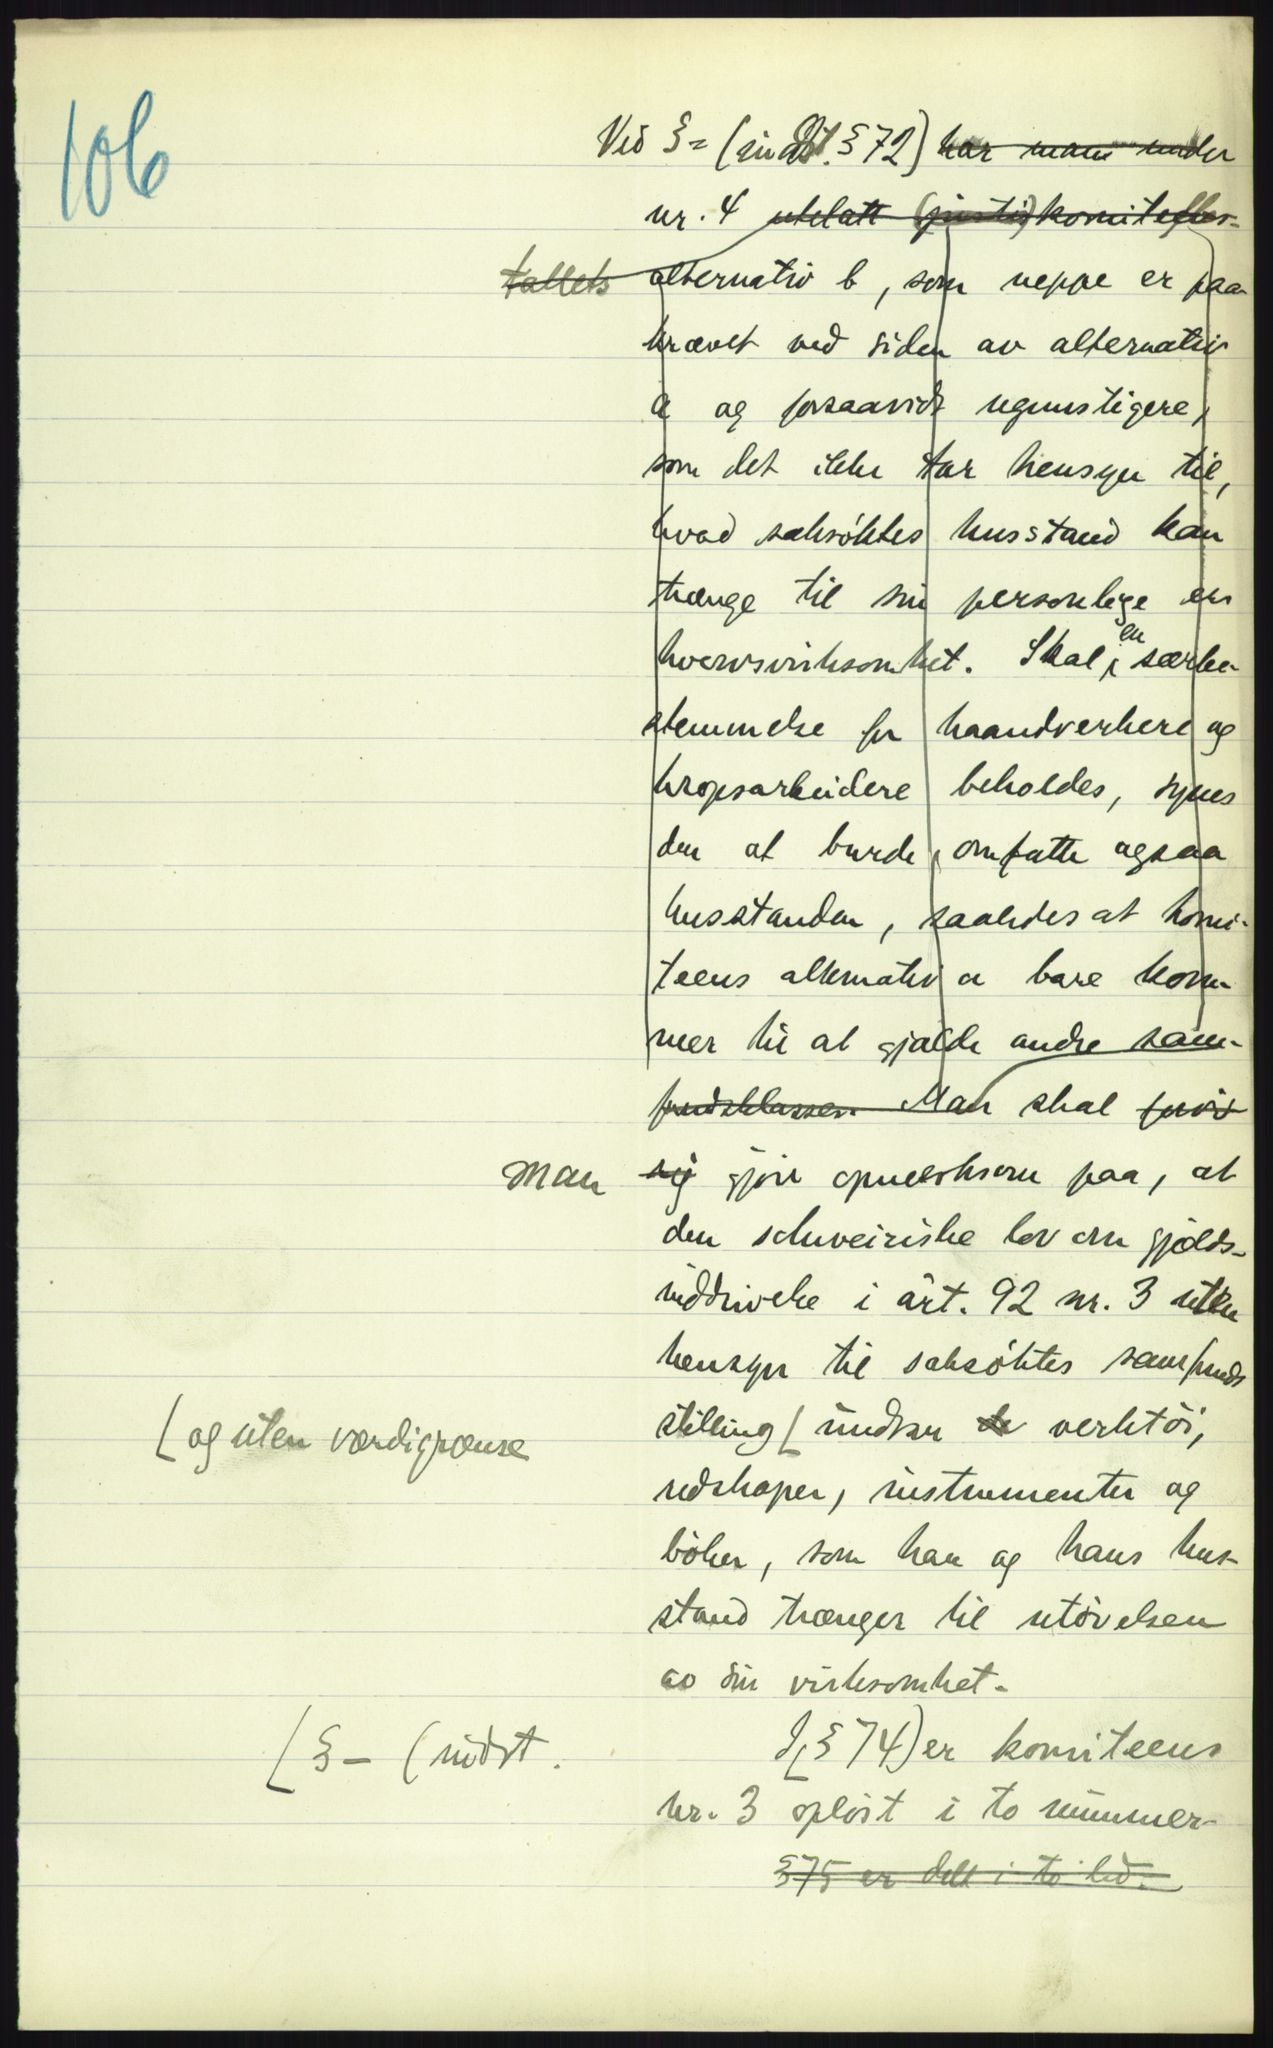 106
Ved §= (indst. § 72) har man under
nr. 4 utelatt (justis)komiteefler-
tallets alternativ b, som neppe er paa-
krævet ved siden av alternativ
a og forsaavidt ugunstigere,
som det ikke tar hensyn til,
hvad saksøktes husstand kan
trænge til sin personlige er
hvervsvirksomhet. Skal en særbe-
stemmelse for haandverkere og
kropsarbeidere beholdes, synes
den at burde omfatte ogsaa
husstanden, saaledes at komi-
teens alternativ a bare kom-
mer til at gjælde andre sam-
fundsklasser. Man skal
man gjør opmerksom paa, at
den schweiziske lov om gjælds-
inddrivelse i art. 92 nr. 3 uten
hensyn til saksøktes samfunds
stilling [ undtar de verktöi,
[ og uten værdigrænse
redskaper, instrumenter og
böker, som han og hans hus-
stand trænger til utövelsen
av sin virksomhet.
[ § - (indst.
I [ § 74) er komiteens
nr. 3 opløst i to nummer.
§ 75 er delt i to led.